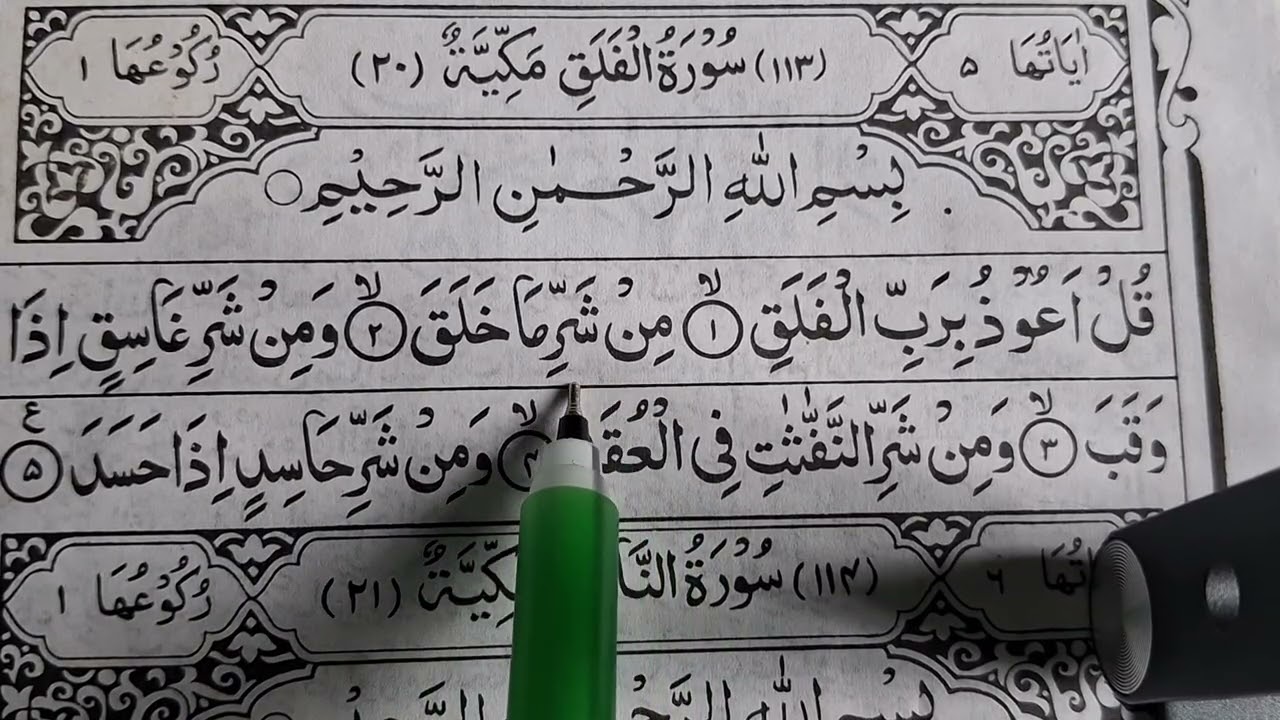 اٰيَاتُهَا ٥ (١١٣) سُوْرَةُ الْفَلَقِ مَكِّيَّةٌ (٢٠) رُكُوْعُهَا ١
بِسْمِ اللّٰهِ الرَّحْمٰنِ الرَّحِيْمِ ○
قُلْ اَعُوْذُ بِرَبِّ الْفَلَقِ ۙ﴿١﴾ مِنْ شَرِّ مَا خَلَقَ ۙ﴿٢﴾ وَمِنْ شَرِّ غَاسِقٍ اِذَا
وَقَبَ ۙ﴿٣﴾ وَمِنْ شَرِّ النَّفّٰثٰتِ فِى الْعُقَ ۙ﴿۴﴾ وَمِنْ شَرِّ حَاسِدٍ اِذَا حَسَدَ ﴿٥﴾ ع
٦ (١١۴) سُوْرَةُ (٢١) رُكُوْعُهَا ١
بِسْمِ اللّٰهِ